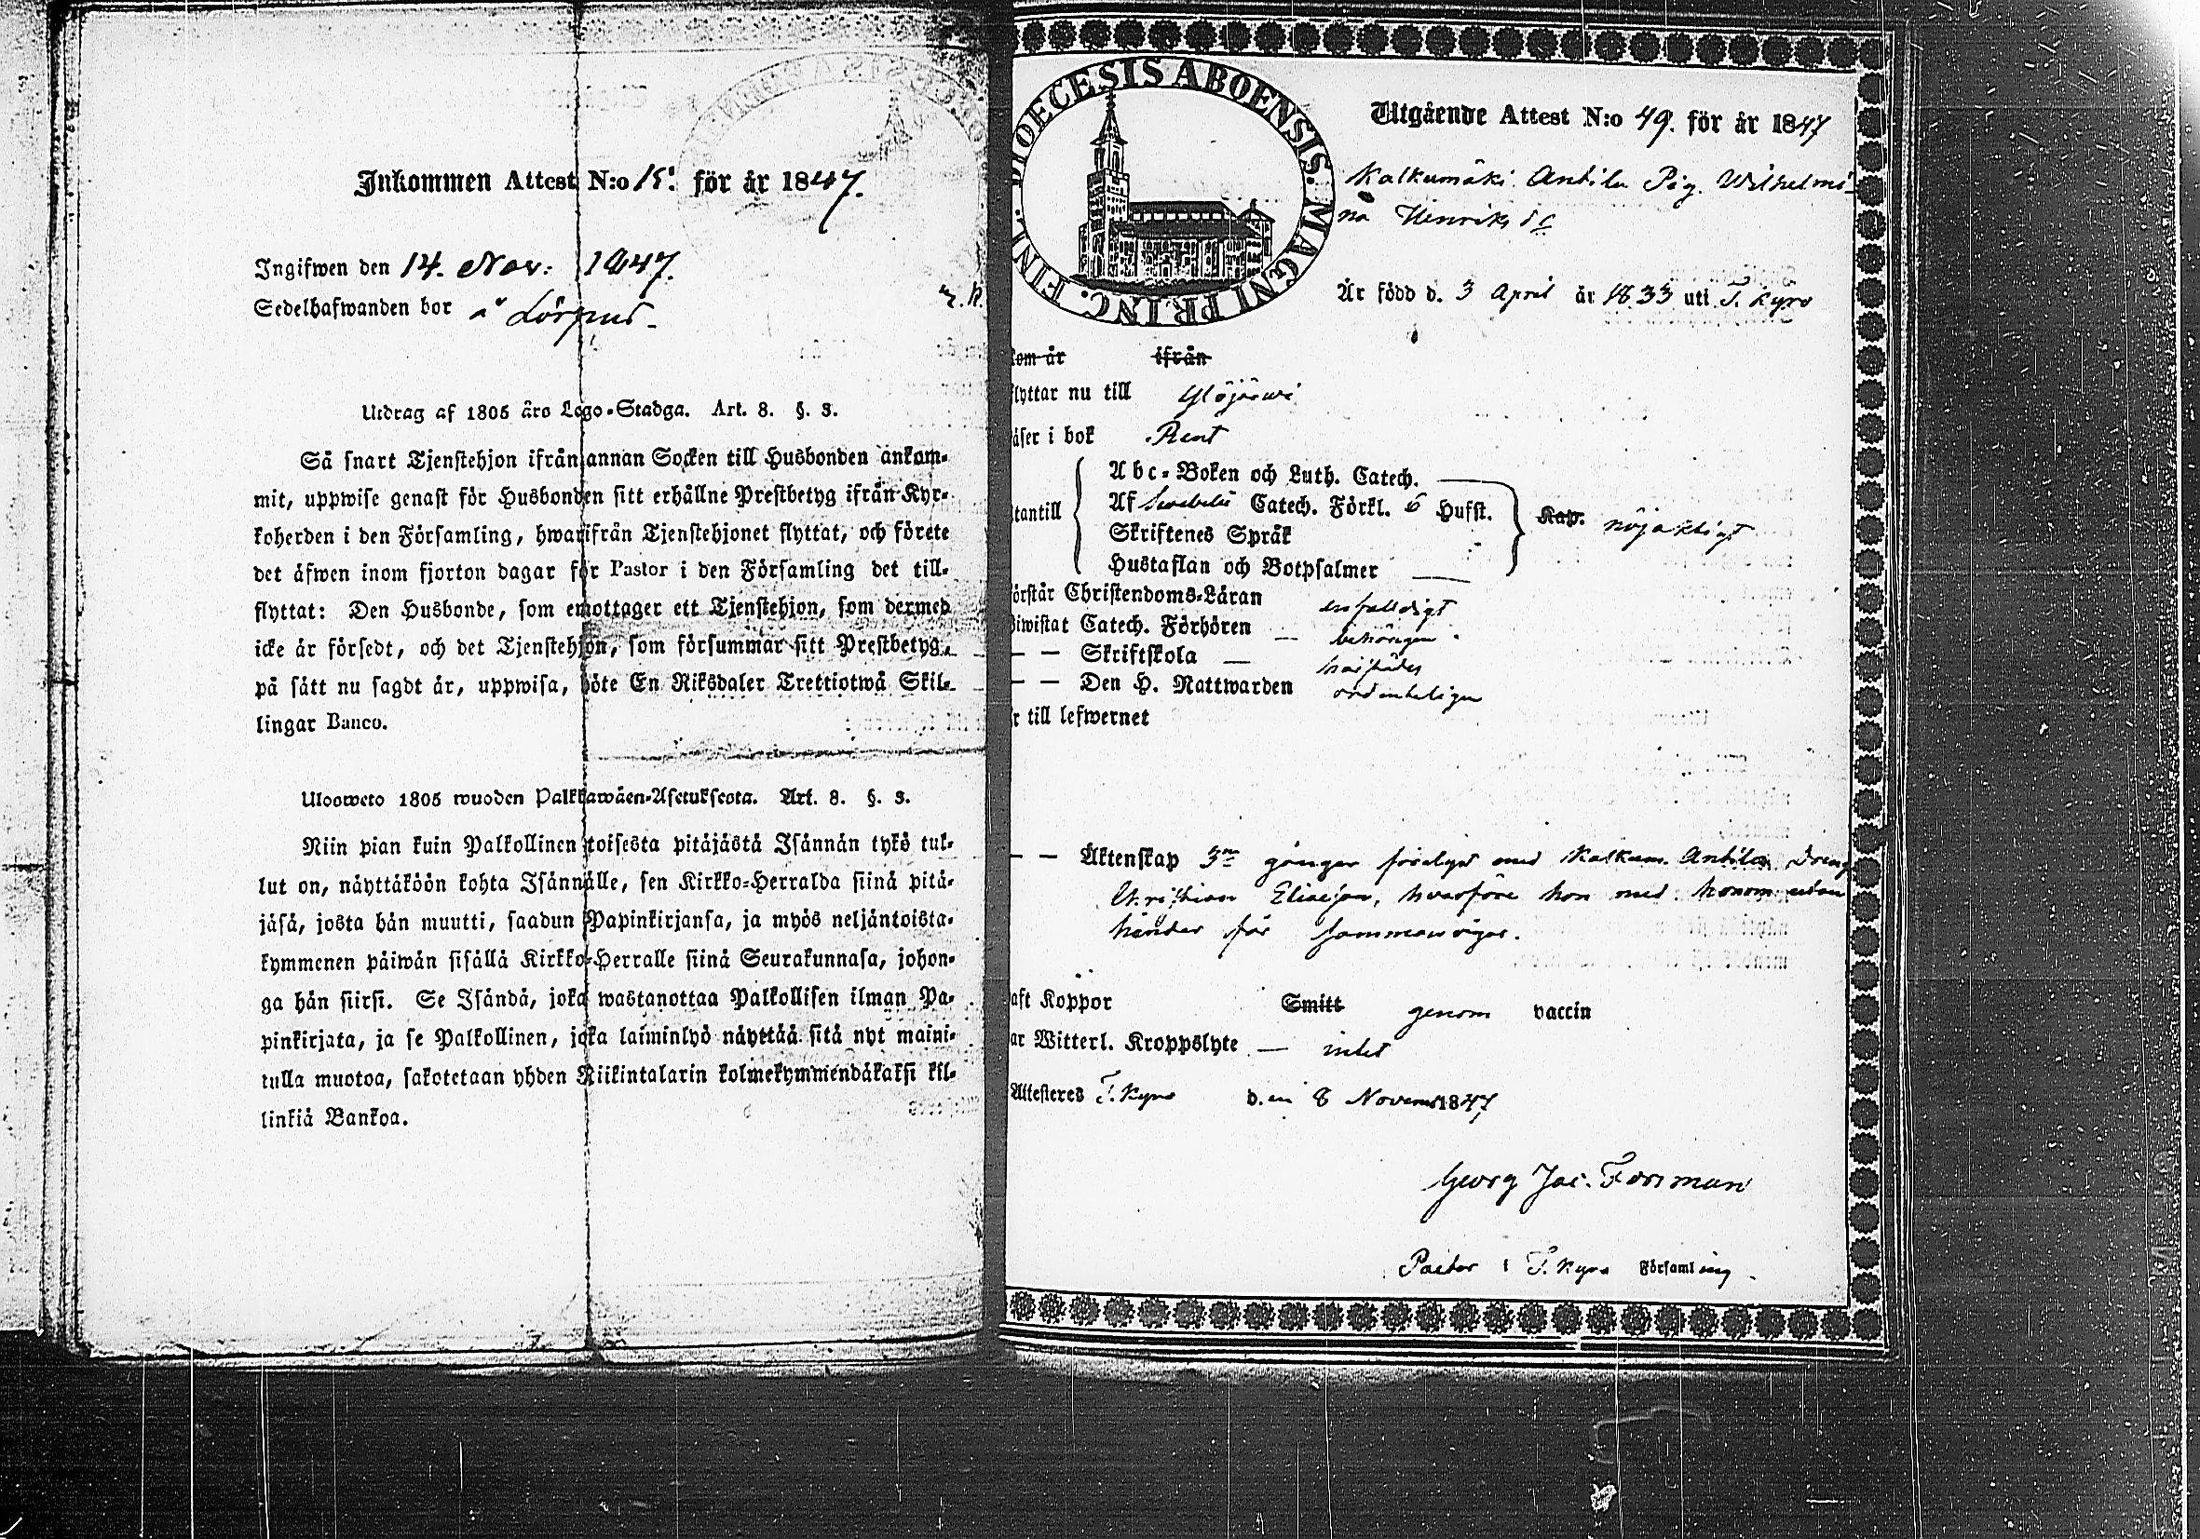 Inkommen Attest N:o 15. för år 1847.
Ingifwen den 14. Nov: 1847.
Sedelhafwanden bor å
Utdrag af 1805 års Lego-Stadga. Art. 8. §. 3.
Så snart Tjenstehjon ifrån annan Socken till Husbonden ankom-
mit, uppwise genast för Husbonden sitt erhållne Prestbetyg ifrån Kyr-
koherden i den Församling, hwarifrån Tjenstehjonet flyttat, och förete
det äfwen inom fjorton dagar för Pastor i den Församling det till-
flyttat: Den Husbonde, som emottager ett Tjenstehjon, som dermed
icke är försedt, och det Tjenstehjon, som försummar sitt Prestbetyg,
på sätt nu sagdt är, uppwisa, böte En Riksdaler Trettiotwå Skil-
lingar Banco.
Ulosweto 1805 wuoden Palkkawäen-Asetuksesta. Art. 8. §. 3.
Niin pian kuin Palkollinen toisesta pitäjästä Isännän tykö tul-
lut on, näyttäköön kohta Isännälle, sen Kirkko-Herralda siinä pitä-
jäsä, josta hän muutti, saadun Papinkirjansa, ja myös neljäntoista-
kymmenen päiwän sisällä Kirkko-Herralle siinä Seurakunnasa, johon-
ga hän siirsi. Se Isändä, joka wastanottaa Palkollisen ilman Pa-
pinkirjata, ja se Palkollinen, joka laiminlyö näyttää sitä nyt maini-
tulla muotoa, sakotetaan yhden Riikintalarin kolmekymmendäkaksi kil-
linkiä Bankoa.
DIOECESIS ABOENSIS. MAGNI PRINC. FINL.
Utgående Attest N:o 49. för år 1847
Kalkumäki Antila Pig. Wilhelmi-
na Henriks d
Är född d. 3 April år 1833 uti T. Kyro
kom år ifrån
flyttar nu till Ylöjärwi
läser i bok Rent
utantill
Abc-Boken och Luth. Catech.
Af Swebelii Catech. Förkl. 6 Hufst.
Kap. nöjaktigt
Skriftenes Språk
Hustaflan och Botpsalmer
örstår Christendoms-Läran enfaldigt
biwistat Catech. Förhören behörigen
— — Skriftskola —
— — Den H. Nattwarden ordenteligen
r till lefwernet
— — Äktenskap 3ne gånger förelyst med Kalkum. Antila Dreng
Christian Eliaejon, hvarföre hon med honom utan
hinder får sammanvigas.
aft Koppor Smitt genom vaccin
ar Witterl. Kroppslyte — intet
Attesteres T. Kyro d. en 8 Novemb 1847
Georg Jac. Forsman
Pastor i T. Kyro Församling